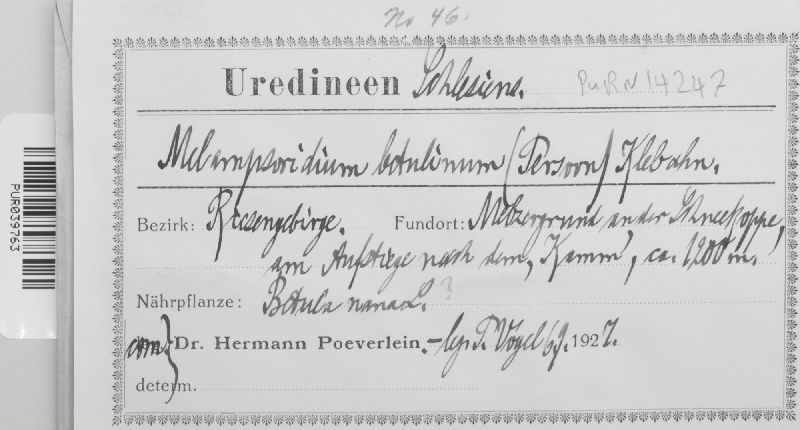 No 46.
Uredineen Schlesiens.
PurN 14247
Melampsoridium betulinum (Persoon) Klebahn.
Bezirk: Riesengebirge. Fundort: Melzergrund an der Schneekoppe,
am Aufstiege nach dem Kamm, ca. 1200 m.
Nährpflanze: Betula nana L. ?
com. Dr. Hermann Poeverlein. – leg. P. Vogel 6/9. 1927.
determ.
PUR039763